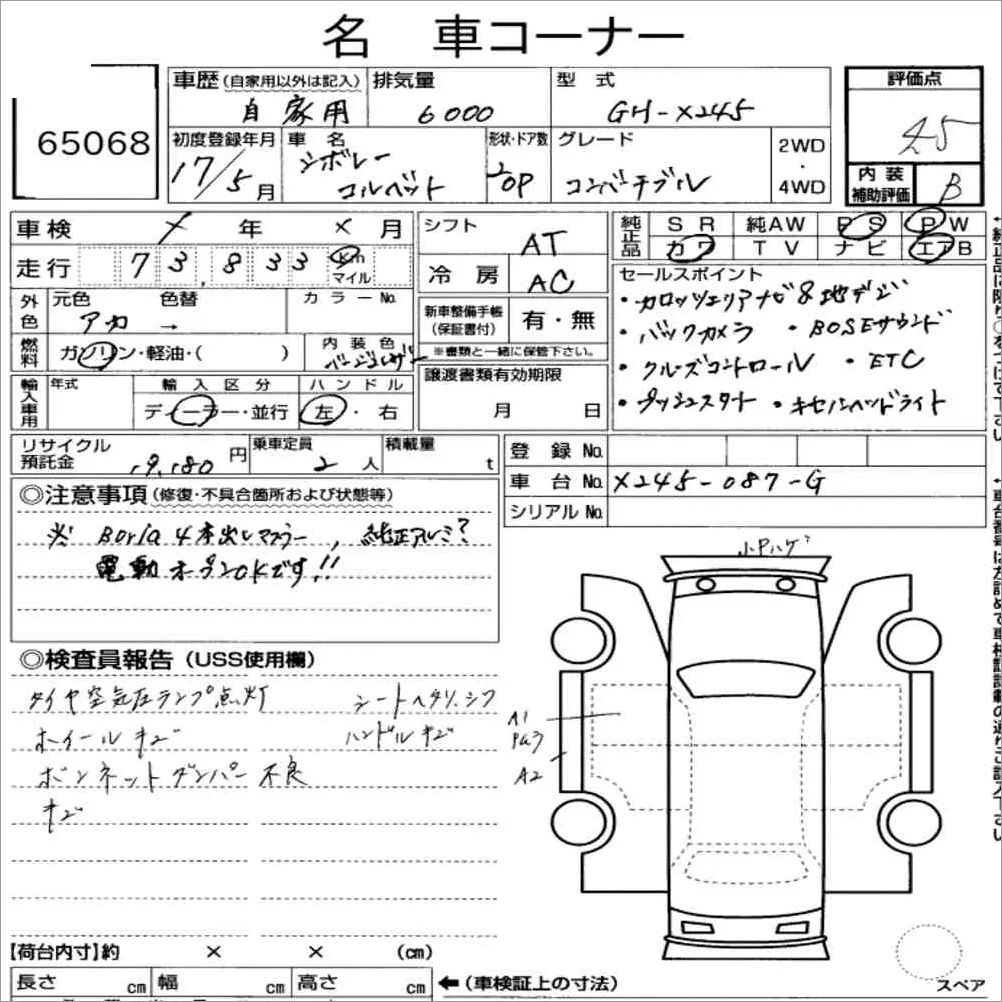 名 車コーナー
65068
車歴(自家用以外は記入) 排気量 型式 評価点
自家用 6000 GH-X245 4.5
初度登録年月 車名 形状・ドア数 グレード 2WD・4WD 内装補助評価
17/5月 シボレー コルベット 2OP コンバーチブル B
車検 × 年 × 月 シフト AT 純正品 SR 純AW PS PW
カワ TV ナビ エアB
走行 73,833 Km マイル 冷房 AC
外色 元色 色替 カラーNo.
アカ →
新車整備手帳(保証書付) 有・無
※書類と一緒に保管下さい。
燃料 ガソリン・軽油・( ) 内装色 ベージュレザー
輸入車用 年式 輸入区分 ハンドル
ディーラー・並行 左・右
譲渡書類有効期限
月 日
セールスポイント
・カロッツェリアナビ&地デジ
・バックカメラ ・BOSEサウンド
・クルーズコントロール ・ETC
・プッシュスタート ・キセノンヘッドライト
リサイクル預託金 19,180円 乗車定員 2人 積載量 t
登録No.
車台No. X245-087-G
シリアルNo.
◎注意事項(修復・不具合箇所および状態等)
※ Borla 4本出しマフラー, 純正アルミ?
電動オープンOKです!!
◎検査員報告(USS使用欄)
タイヤ空気圧ランプ点灯 シートヘタリ、シワ
ホイールキズ ハンドルキズ
ボンネットダンパー不良
キズ
小Pハゲ
A1
A2
【荷台内寸】約 × × (cm)
長さ cm 幅 cm 高さ cm ←(車検証上の寸法)
スペア